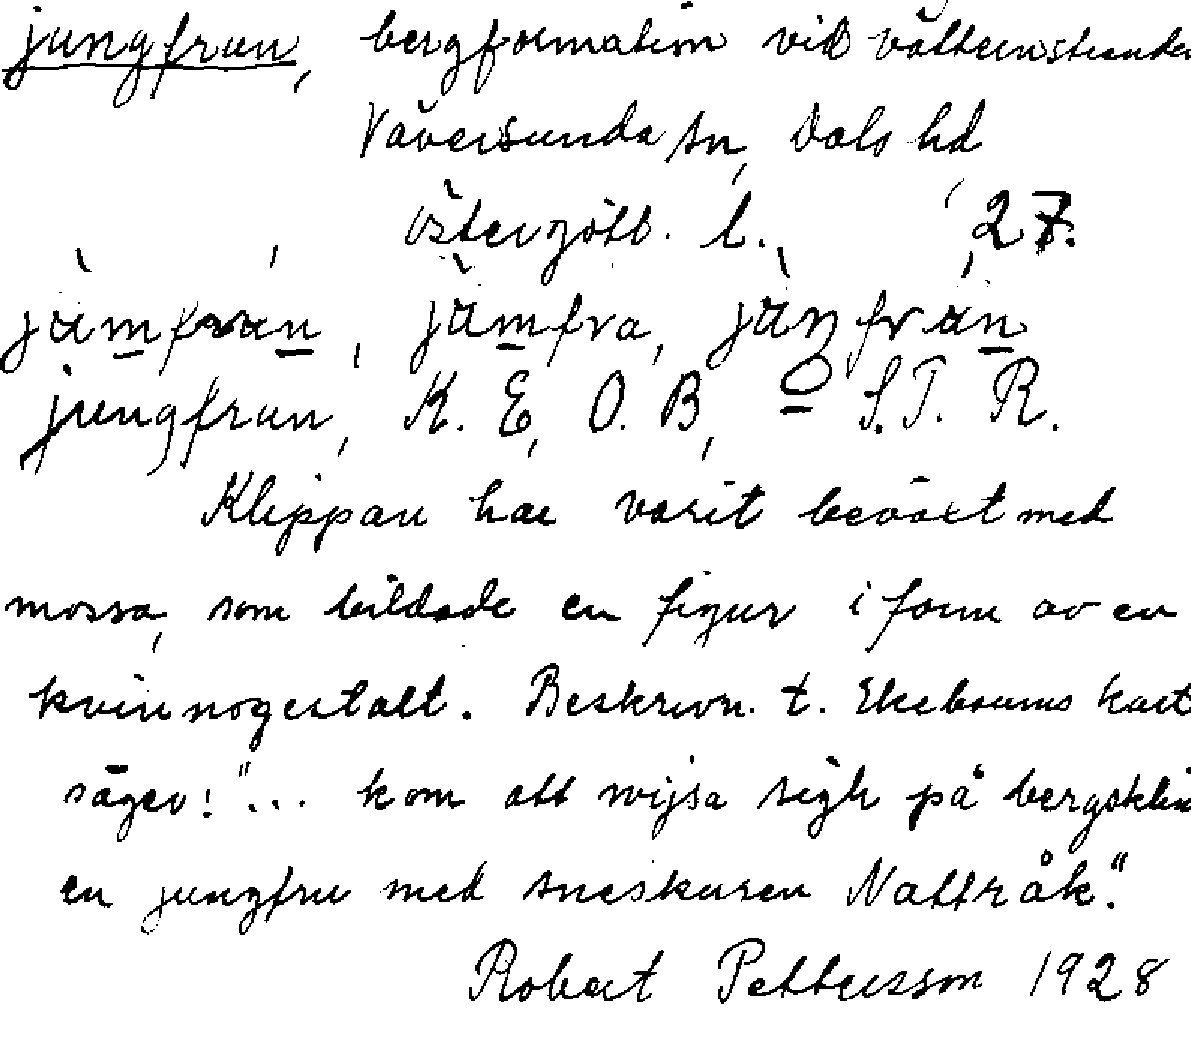 jungfrun, bergformation vid vätternstranden
Väversunda sn, Dals hd,
Östergötl. l. 27.
jämfrun, jämfra, jänfrán
jungfrun, K. E, O. B, O S.T. R.
Klippan har varit beväxt med
mossa, som bildade en figur i form av en
kvinnogestalt. Beskrivn. t. Ekeboums kart
säger: "... kom att wijsa sigh på bergsklin
en jungfru med sneskuren Nattråk."
Robert Pettersson 1928